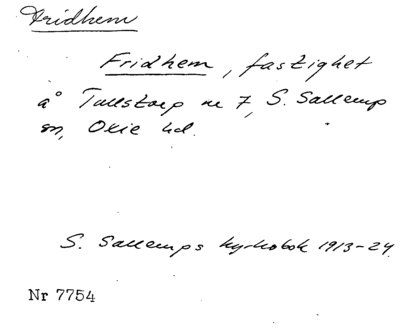 Fridhem
Fridhem, fastighet
å Tullstorp nr 7, S. Sallerup
sn, Oxie hd.
S. Sallerups kyrkobok 1913-24.
Nr 7754